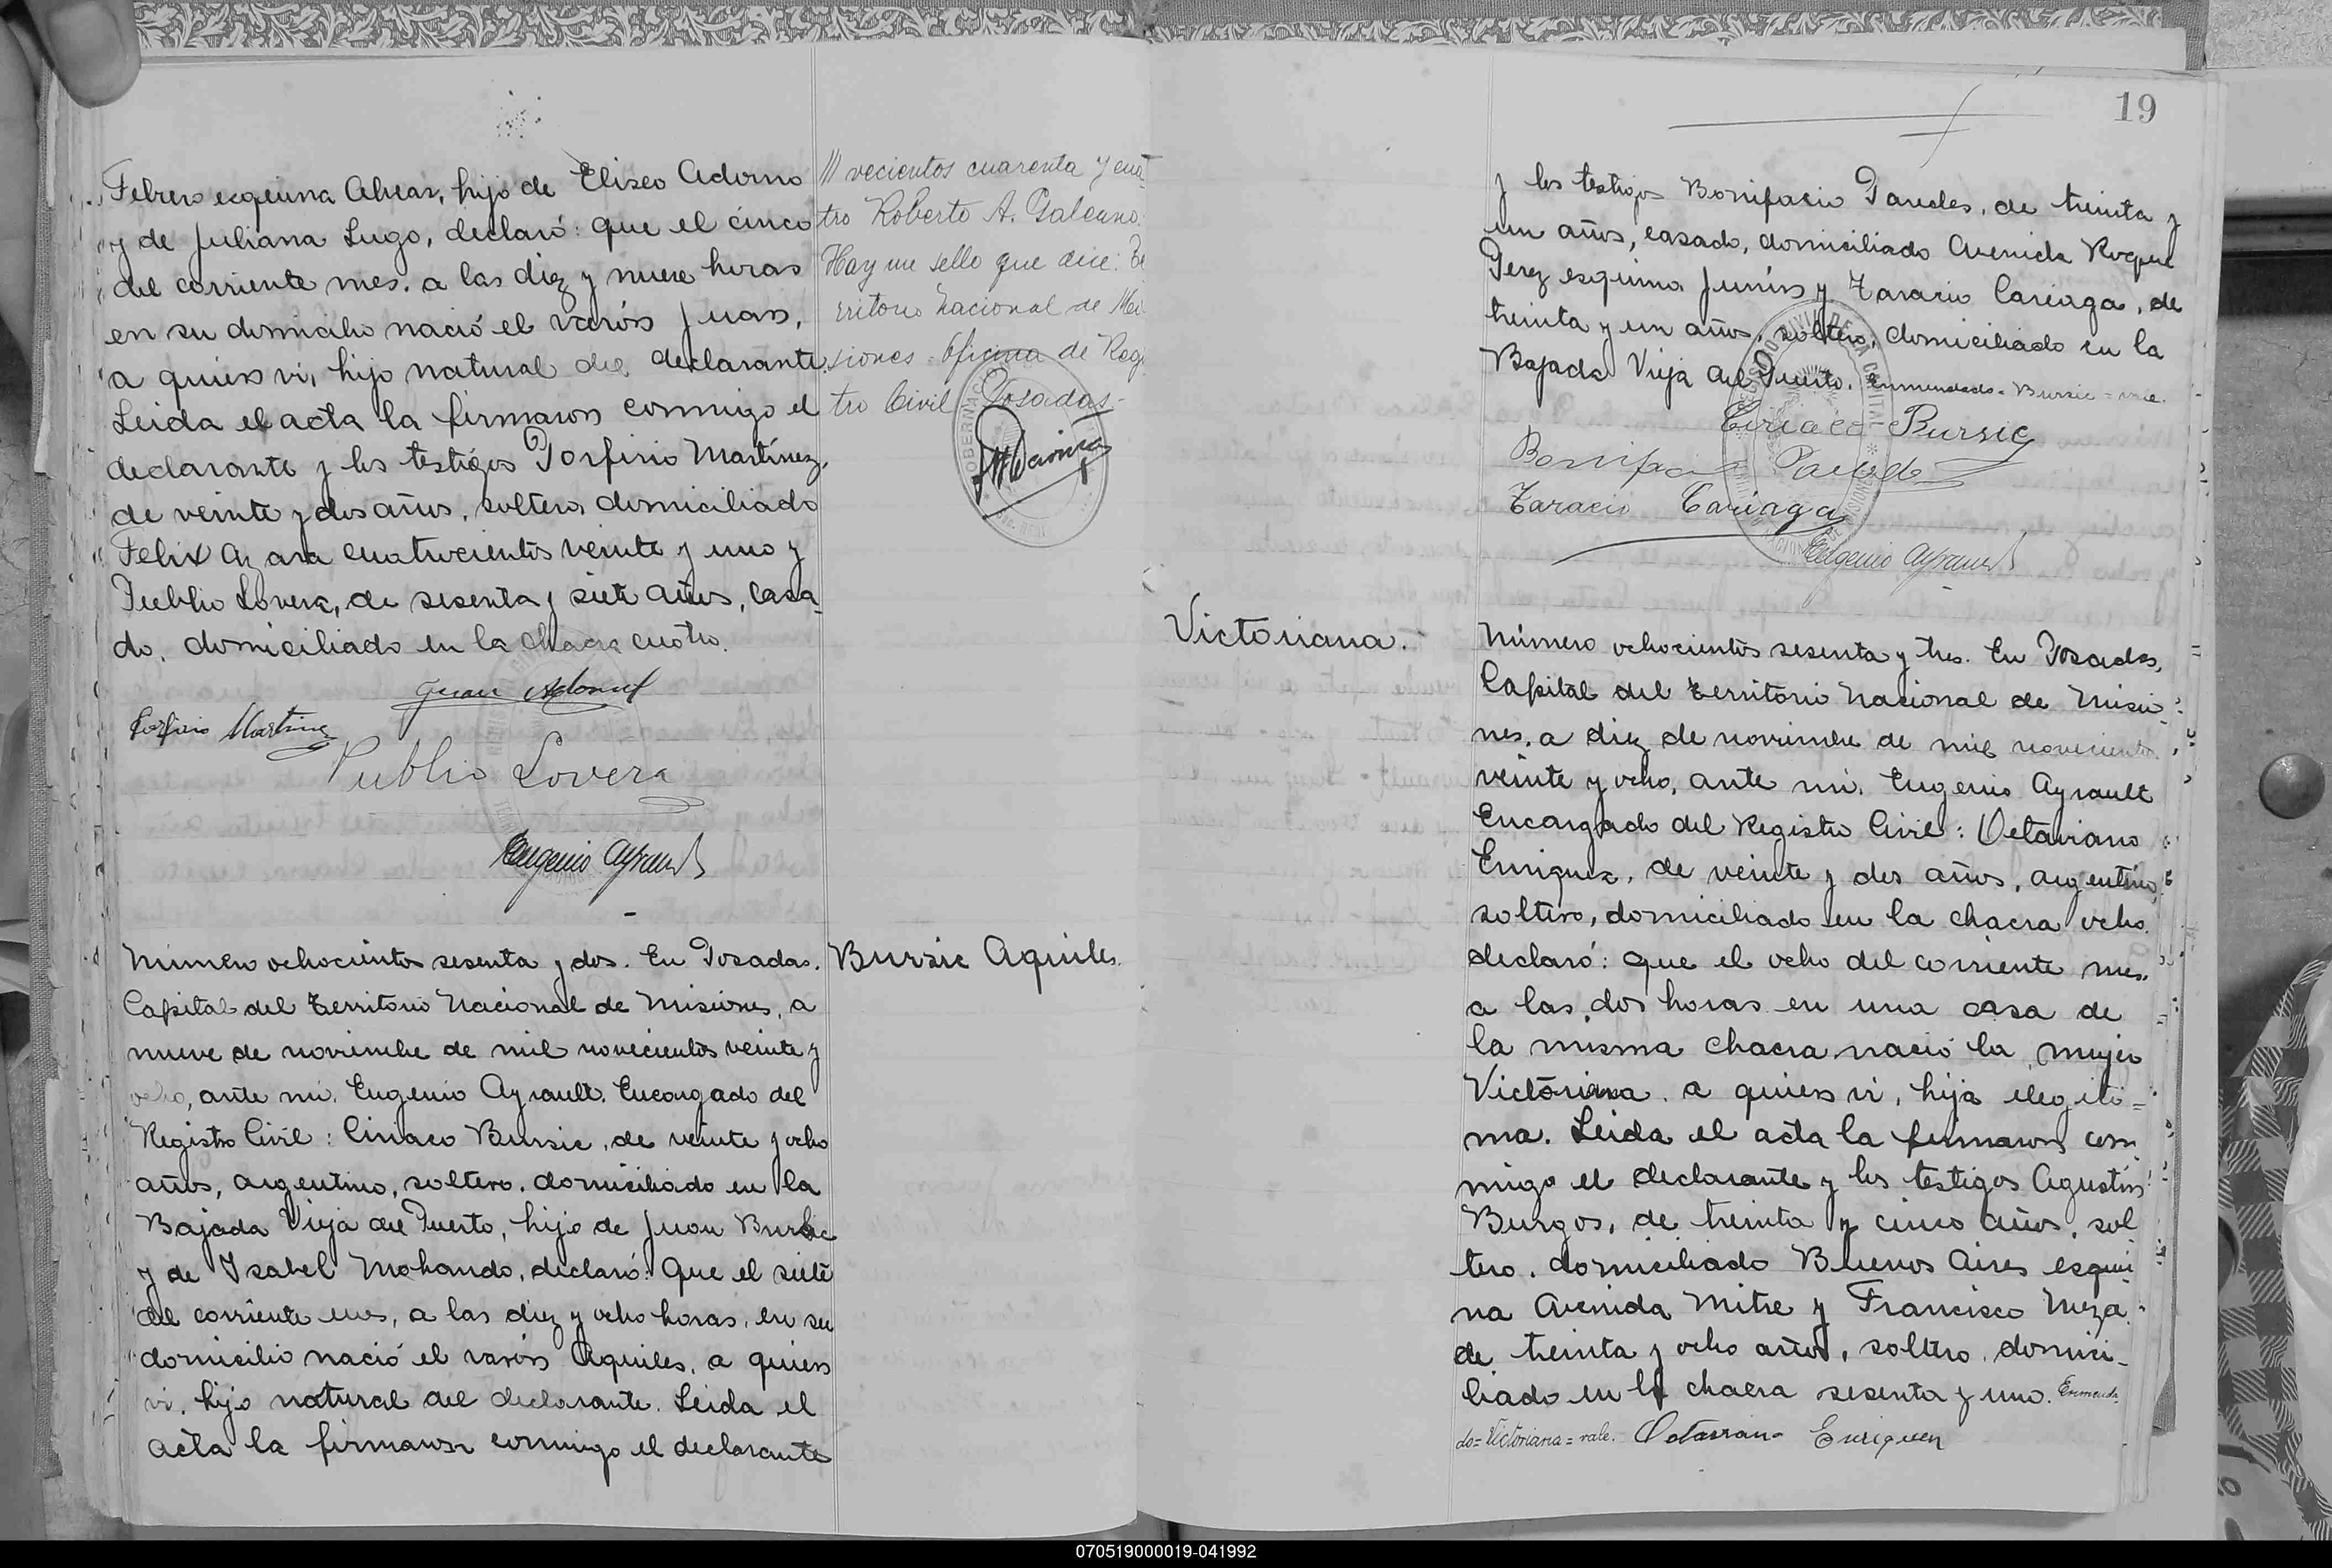 Febrero esquina Alvear, hijo de Eliseo Adorno
y de Juliana Lugo, declaró: que el cinco
del corriente mes, a las diez y nueve horas
en su domicilio nació el varón Juan,
a quien vi, hijo natural del declarante.
Leida el acta la firmaron conmigo el
declarante y los testigos Porfirio Martínez,
de veinte y dos años, soltero, domiciliado
Felix Azara cuatrocientos veinte y uno y
Publio Lovera, de sesenta y siete años, casa-
do, domiciliado en la chacra cuatro.
Juan Adorno
Porfirio Martinez
Publio Lovera
Eugenio Ayrault
vecientos cuarenta y cua-
tro Roberto A. Galeano.
Hay un sello que dice: Te
rritorio Nacional de Mi
siones - Oficina de Regis
tro Civil Posadas-
Número ochocientos sesenta y dos. En Posadas,
Capital del Territorio Nacional de Misiones, a
nueve de noviembre de mil novecientos veinte y
ocho, ante mi, Eugenio Ayrault, Encargado del
Registro Civil: Ciriaco Bursic, de veinte y ocho
años, argentino, soltero, domiciliado en la
Bajada Vieja del Puerto, hijo de Juan Bursic
y de Ysabel Mohando, declaró: Que el siete
del corriente mes, a las diez y ocho horas, en su
domicilio nació el varón Aquiles, a quien
vi, hijo natural del declarante. Leida el
acta la firmaron conmigo el declarante
Bursic Aquiles.
19
y los testigos Bonifacio Paredes, de treinta y
un años, casado, domiciliado Avenida Roque
Perez esquina Junín y Taracio Cariaga, de
treinta y un años, soltero, domiciliado en la
Bajada Vieja del Puerto. Enmendado = Bursic = vale.
Ciriaco Bursic
Bonifacio Paredes
Taracio Cariaga
Eugenio Ayrault
Victoriana.
Número ochocientos sesenta y tres. En Posadas,
Capital del Territorio Nacional de Misio-
nes, a diez de noviembre de mil novecientos
veinte y ocho, ante mi, Eugenio Ayrault
Encargado del Registro Civil: Octaviano
Enriquez, de veinte y dos años, argentino,
soltero, domiciliado en la chacra ocho,
declaró: que el ocho del corriente mes,
a las dos horas en una casa de
la misma chacra nació la mujer
Victoriana, a quien vi, hija ilegiti=
ma. Leida el acta la firmaron con
migo el declarante y los testigos Agustín
Burgos, de treinta y cinco años, sol
tero, domiciliado Buenos Aires esqui
na Avenida Mitre y Francisco Meza,
de treinta y ocho años, soltero, domici-
liado en la chacra sesenta y uno. Enmenda
do=Victoriana=vale. Octaviano Enriquez
070519000019-041992